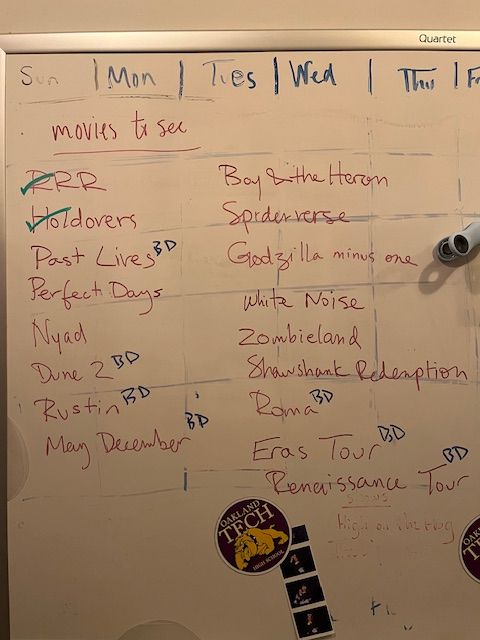 Quartet
Sun | Mon | Tues | Wed | Thu | F
movies to see
RRR
Holdovers
Past Lives BD
Perfect Days
Nyad
Dune 2 BD
Rustin BD
May December BD
Boy & the Heron
Spiderverse
Godzilla minus one
White Noise
Zombieland
Shawshank Redemption
Roma BD
Eras Tour BD
Renaissance Tour BD
High on the Hog
OAKLAND
TECH
HIGH SCHOOL